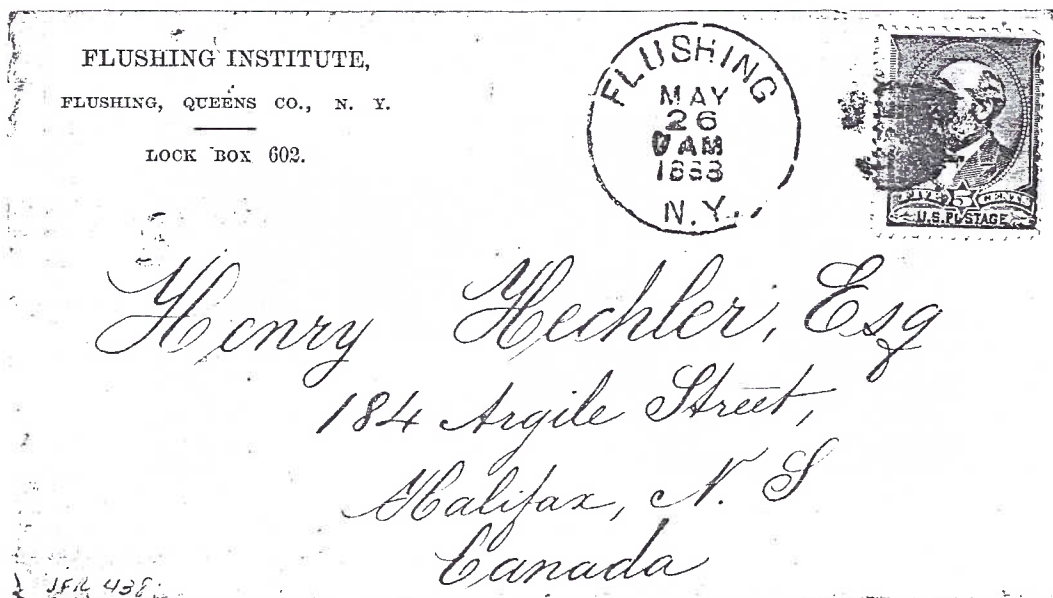 FLUSHING INSTITUTE,
FLUSHING, QUEENS CO., N. Y.
LOCK BOX 602.
FLUSHING
MAY
26
AM
1888
N.Y.
FIVE 5 CENTS
U.S. POSTAGE
Henry Hechler, Esq
184 Argile Street,
Halifax, N. S
Canada
438